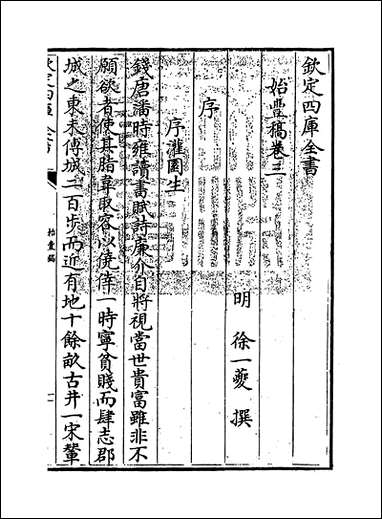 欽定四庫全書
始豐稿卷三
明　徐一夔　撰
序
序灌園生
錢唐潘時雍讀書賦詩廉介自將視當世貴富雖非不
願欲者使其脂韋取容以僥倖一時寧貧賤而肆志郡
城之東未傅城二百步而近有地十餘畝古井一宋輦
欽定四庫全書
始豐稿